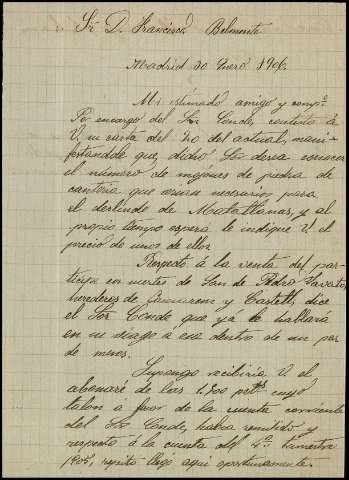 Sr D. Francisco Belmonte
Madrid 30 Enero 1906.
Mi estimado amigo y comp.º
Por encargo del Sor Conde, contesto á
V. su carta del 20 del actual, mani-
festándole que, dicho Sor desea conocer
el número de mojones de piedra de
cantería que serían necesarios para
el deslinde de Matallanas, y al
propio tiempo espera le indique V. el
precio de unos de ellos.
Respecto á la venta del par-
tícipe en suertes de San de Pedro
herederos de y Castell, dice
el Sor Conde que ya le hablará
en su viage á esa dentro de un par
de meses.
Supongo recibiría V. el
abonaré de las 1.700 ptas cuyo
talon a favor de la cuenta corriente
del Sor Conde, había remitido, y
respecto á la cuenta del 4º trimestre
1905, repito llegó aqui oportunamente.